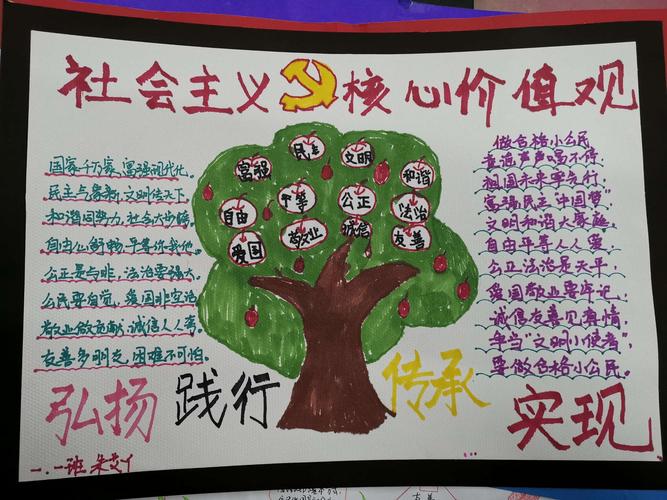 社会主义核心价值观
国家千万家,富强现代化。
民主气象新,文明传天下。
和谐同努力,社会大步跨。
自由心舒畅,平等你我他。
公正是与非,法治要强大。
公民要自觉,爱国非空话。
敬业做贡献,诚信人人夸。
友善多朋友,困难不可怕。
富强
民主
文明
和谐
自由
平等
公正
法治
爱国
敬业
诚信
友善
做合格小公民
童谣声声唱不停,
祖国未来
富强民主"中国梦"
文明和谐大家庭
自由平等人人爱,
公正法治是天平,
爱国敬业要牢记,
诚信友善见真情,
争当"文明小使者"
要做合格小公民。
弘扬
践行
传承
实现
一.一班